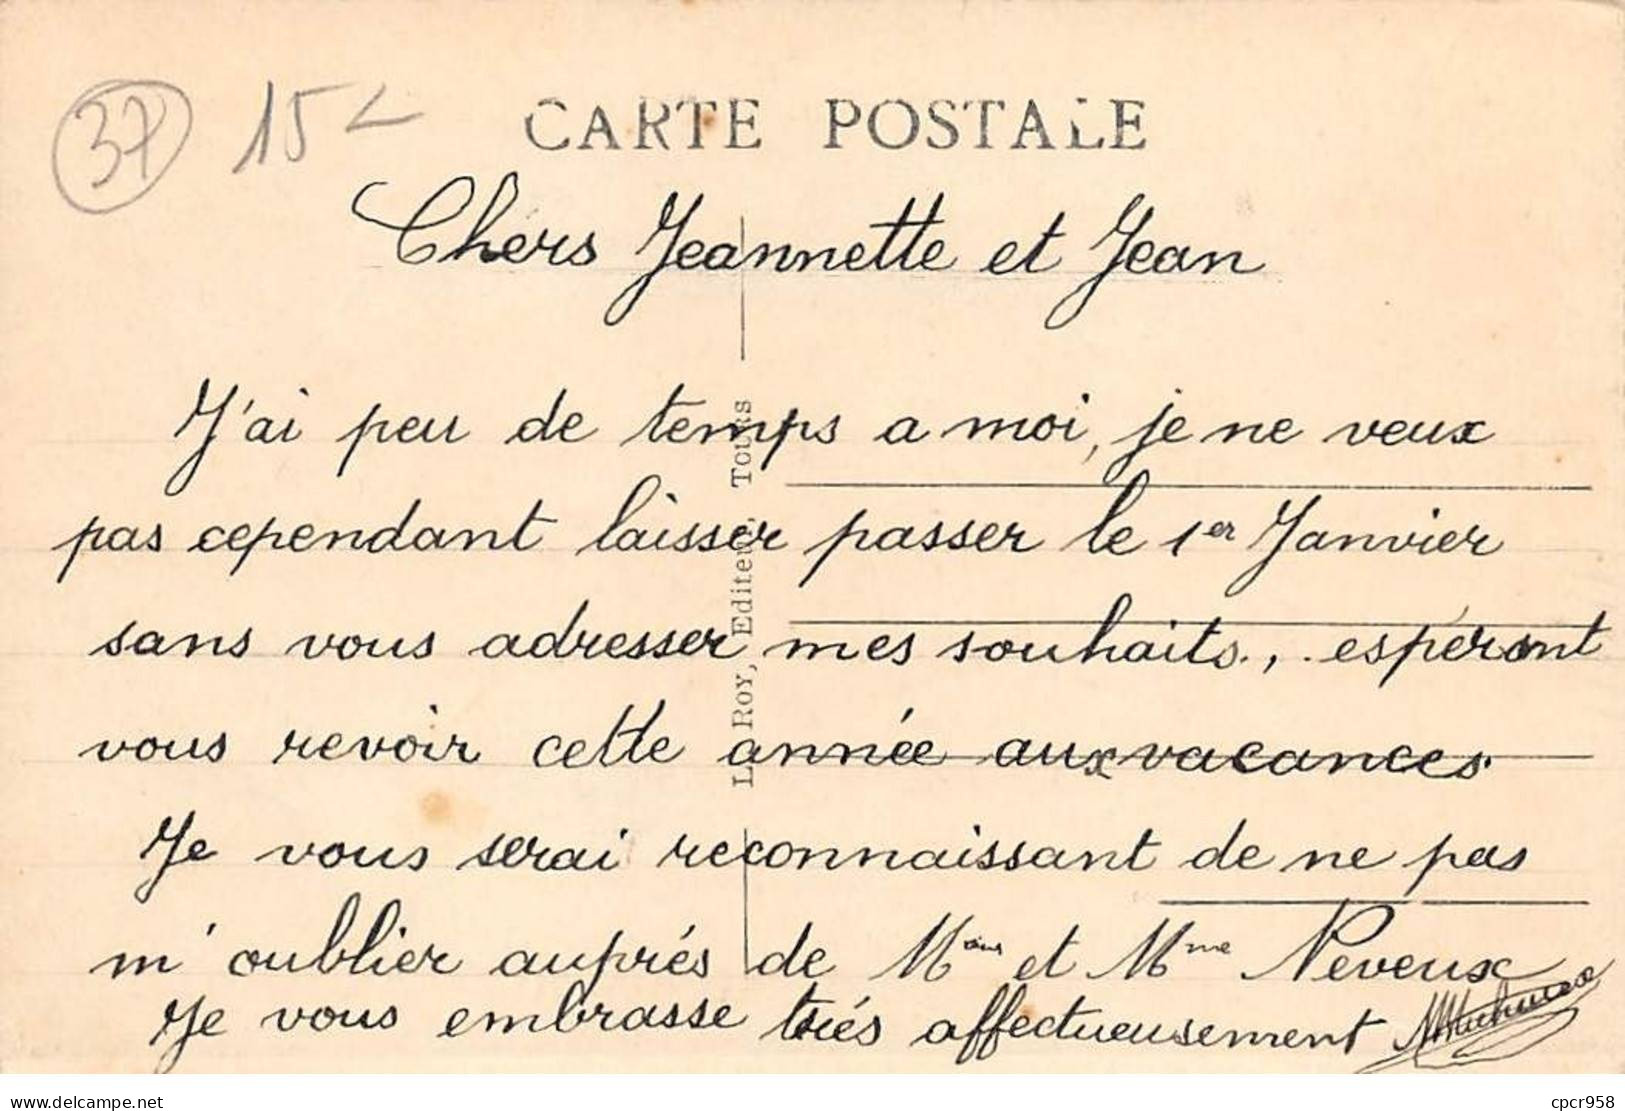 37 15
CARTE POSTALE
Chers Jeannette et Jean
J'ai peu de temps a moi, je ne veux
pas cependant laisser passer le 1er Janvier
sans vous adresser mes souhaits, espérant
vous revoir cette année aux vacances.
Je vous serai reconnaissant de ne pas
m'oublier auprés de et Mme Neveux
Je vous embrasse trés affectueusement
L. Roy, Editeur, Tours
www.delcampe.net
cpcr958